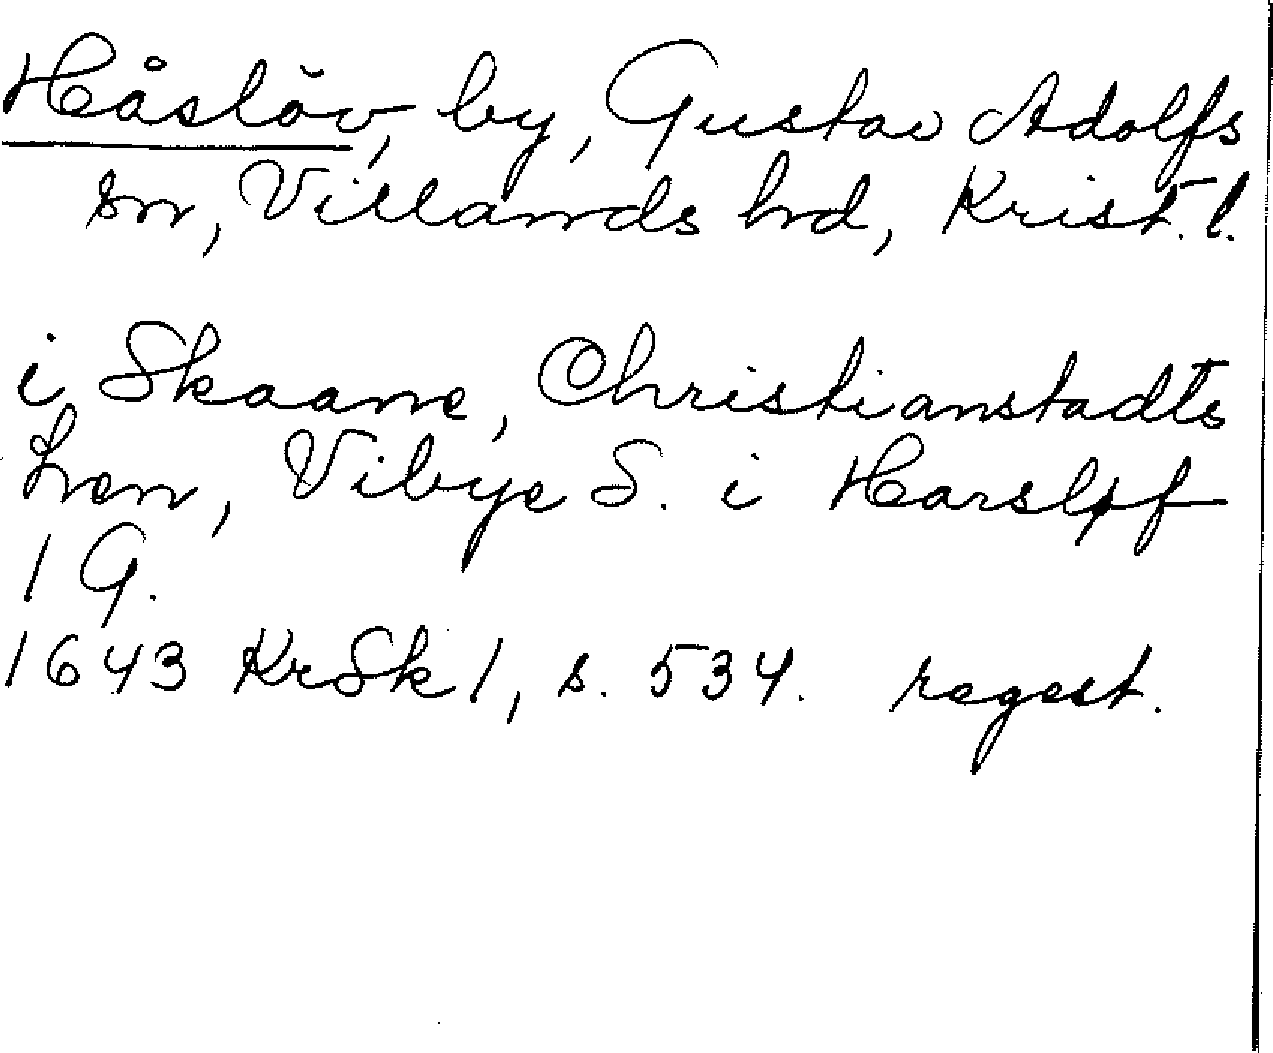 Håslöv, by, Gustav Adolfs
sn, Villands hd, Krist. l.
i Skaane, Christianstadts
Len, Vibye S. i Harsløf
1 G.
1643 KrSk 1, s. 534. regest.